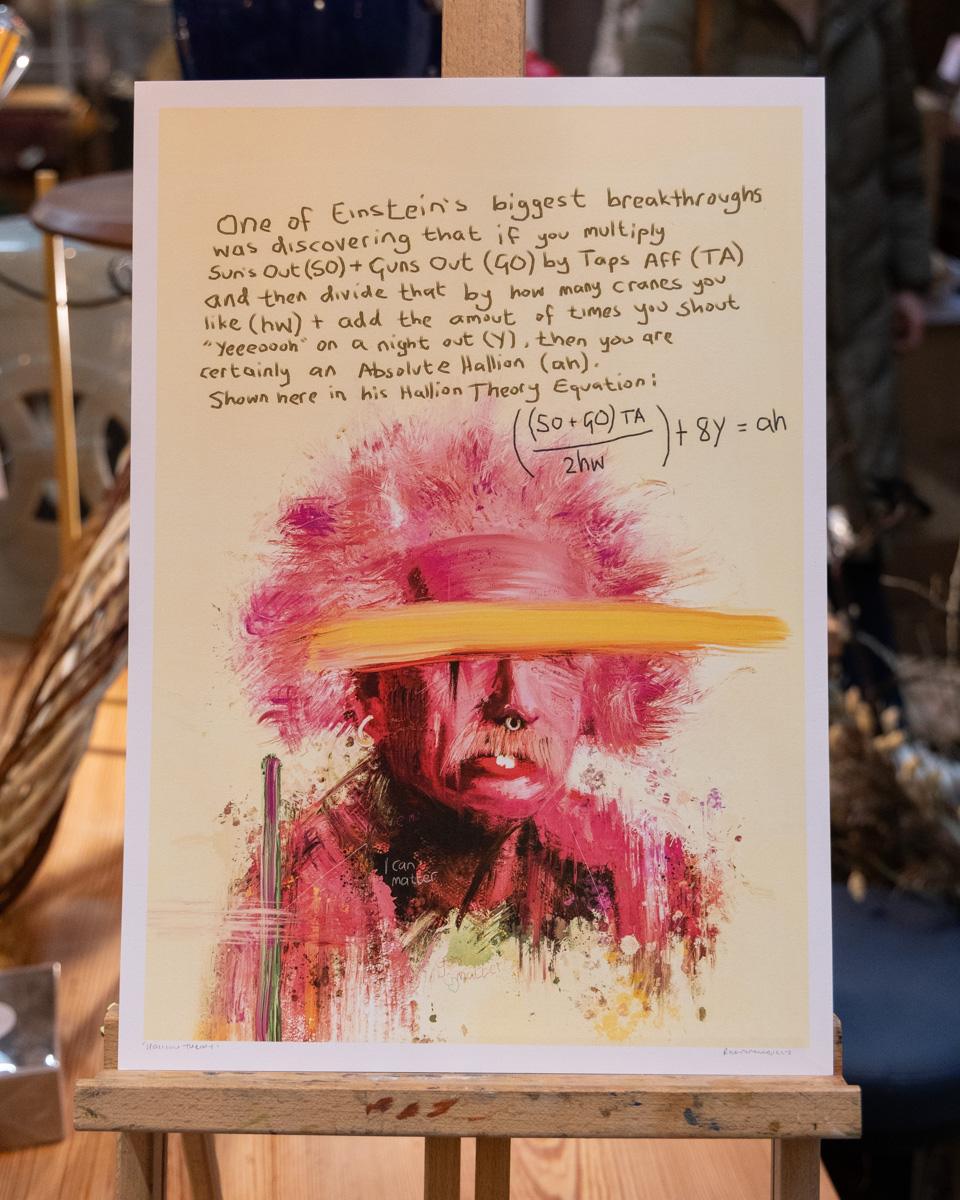 One of Einstein's biggest breakthroughs
was discovering that if you multiply
Sun's Out (SO) + Guns Out (GO) by Taps Aff (TA)
and then divide that by how many cranes you
like (hw) + add the amout of times you shout
"Yeeeoooh" on a night out (Y), then you are
certainly an Absolute Hallion (ah).
Shown here in his Hallion Theory Equation:
((SO + GO) TA / 2hw) + 8Y = ah
I can
matter
matter
"Hallion Theory"